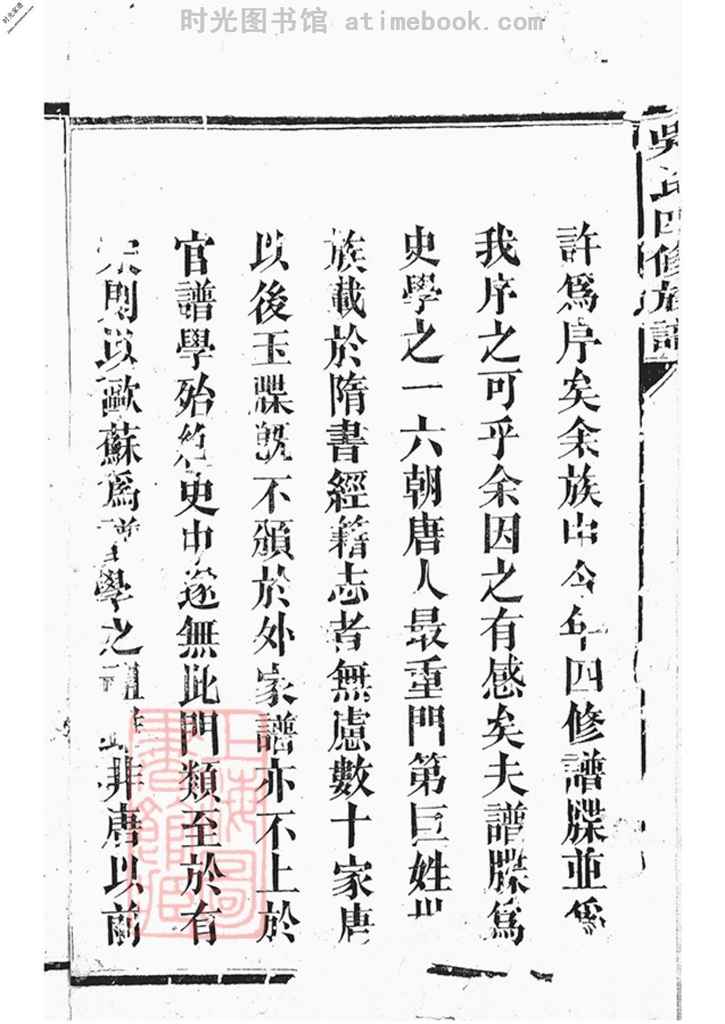 时光图书馆 atimebook.com
吳氏四修族譜
許爲序矣余族由今年四修譜牒並爲
我序之可乎余因之有感矣夫譜牒爲
史學之一六朝唐人最重門第巨姓世
族載於隋書經籍志者無慮數十家唐
以後玉牒旣不頒於外家譜亦不上於
官譜學殆絶史中遂無此門類至於有
宋則以歐蘇爲譜學之祖非唐以前
上海圖書館藏